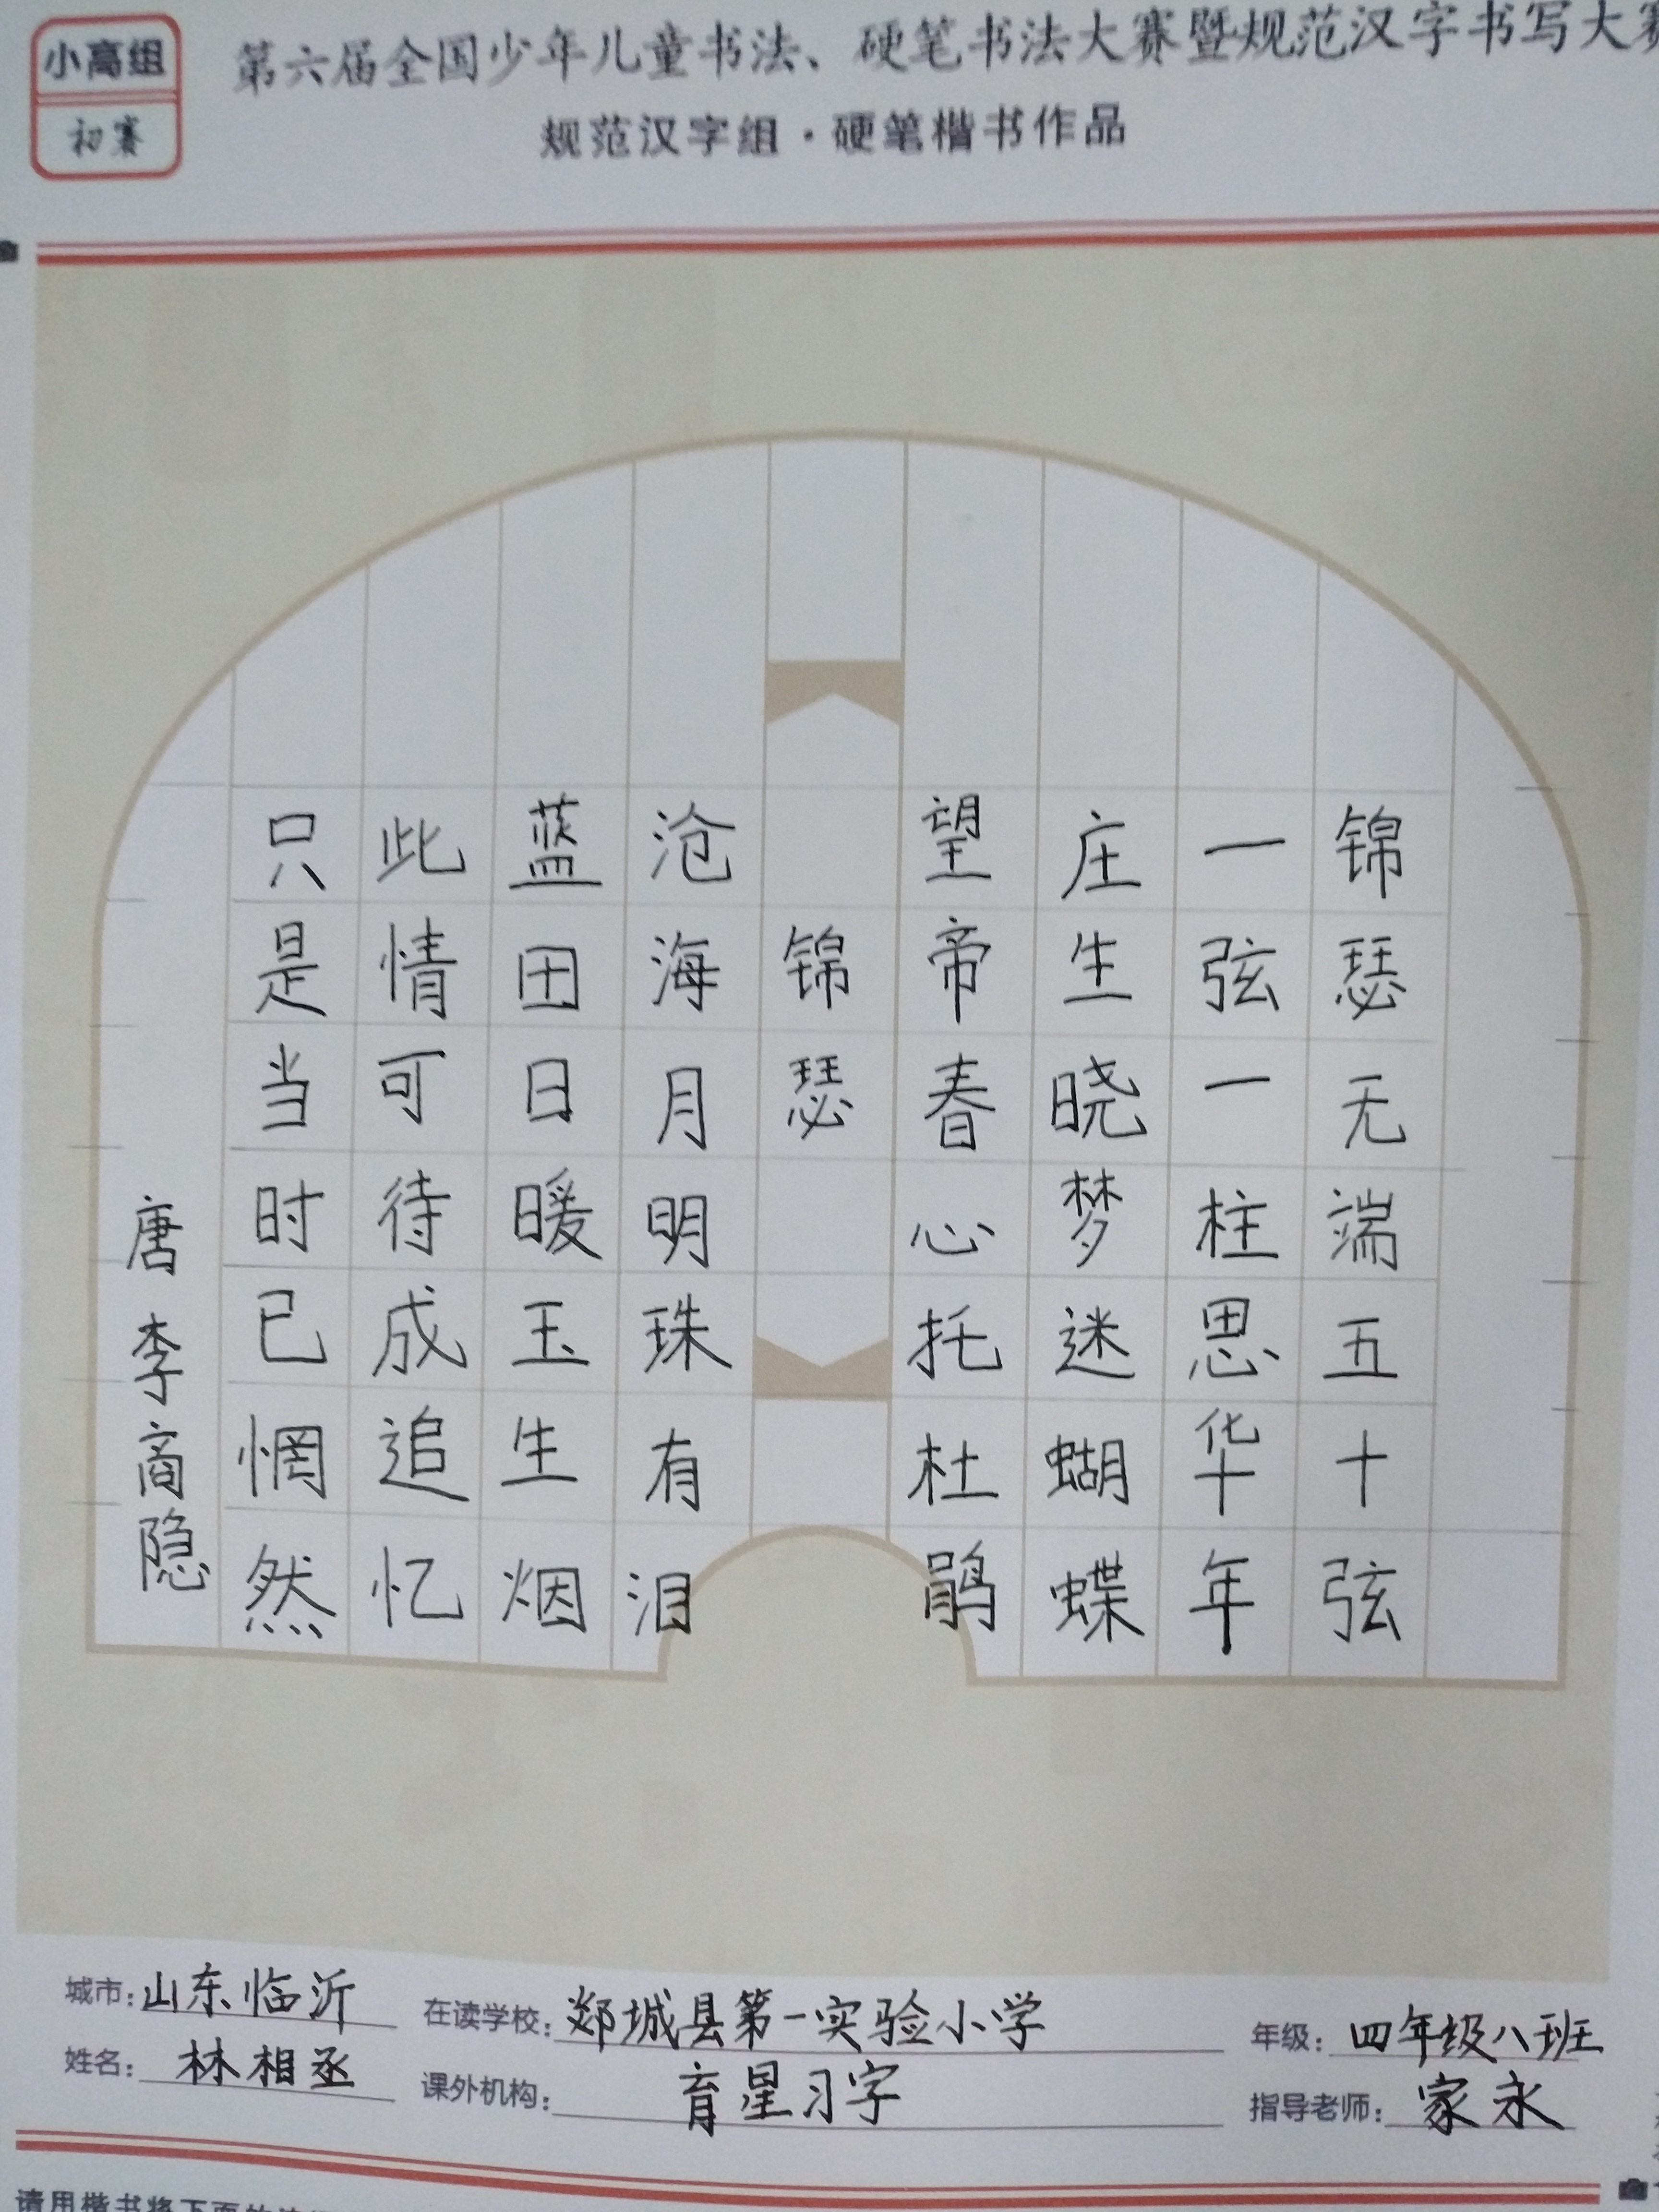 小高组
初赛
第六届全国少年儿童书法、硬笔书法大赛暨规范汉字书写大赛
规范汉字组·硬笔楷书作品
锦瑟无端五十弦
一弦一柱思华年
庄生晓梦迷蝴蝶
望帝春心托杜鹃
锦瑟
沧海月明珠有泪
蓝田日暖玉生烟
此情可待成追忆
只是当时已惘然
唐李商隐
城市：山东临沂
在读学校：郯城县第一实验小学
年级：四年级八班
姓名：林相丞
课外机构：育星习字
指导老师：家永
请用楷书将下面的